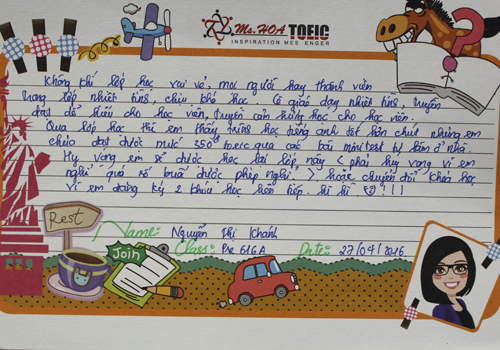 Ms. HOA TOEIC
INSPIRATION MESSENGER
Không khí lớp học vui vẻ, mọi người hay thành viên
trong lớp nhiệt tình, chịu khó học. Cô giáo dạy nhiệt tình, truyền
đạt dễ hiểu cho học viên, truyền cảm hứng cho học viên.
Qua lớp học thì em thấy trình học tiếng anh tốt hơn chút nhưng em
chưa đạt được mức 350 toeic qua các bài minitest tự làm ở nhà.
Hy vọng em sẽ được học lại lớp này < phải hy vọng vì em
nghỉ quá số buổi được phép nghỉ > hoặc chuyển đổi khóa học
vì em đăng ký 2 khóa học liên tiếp. hì hì !!!
Rest
Name: Nguyễn Thị Khánh
Join
Class: Pre 616A Date: 27/04/2016